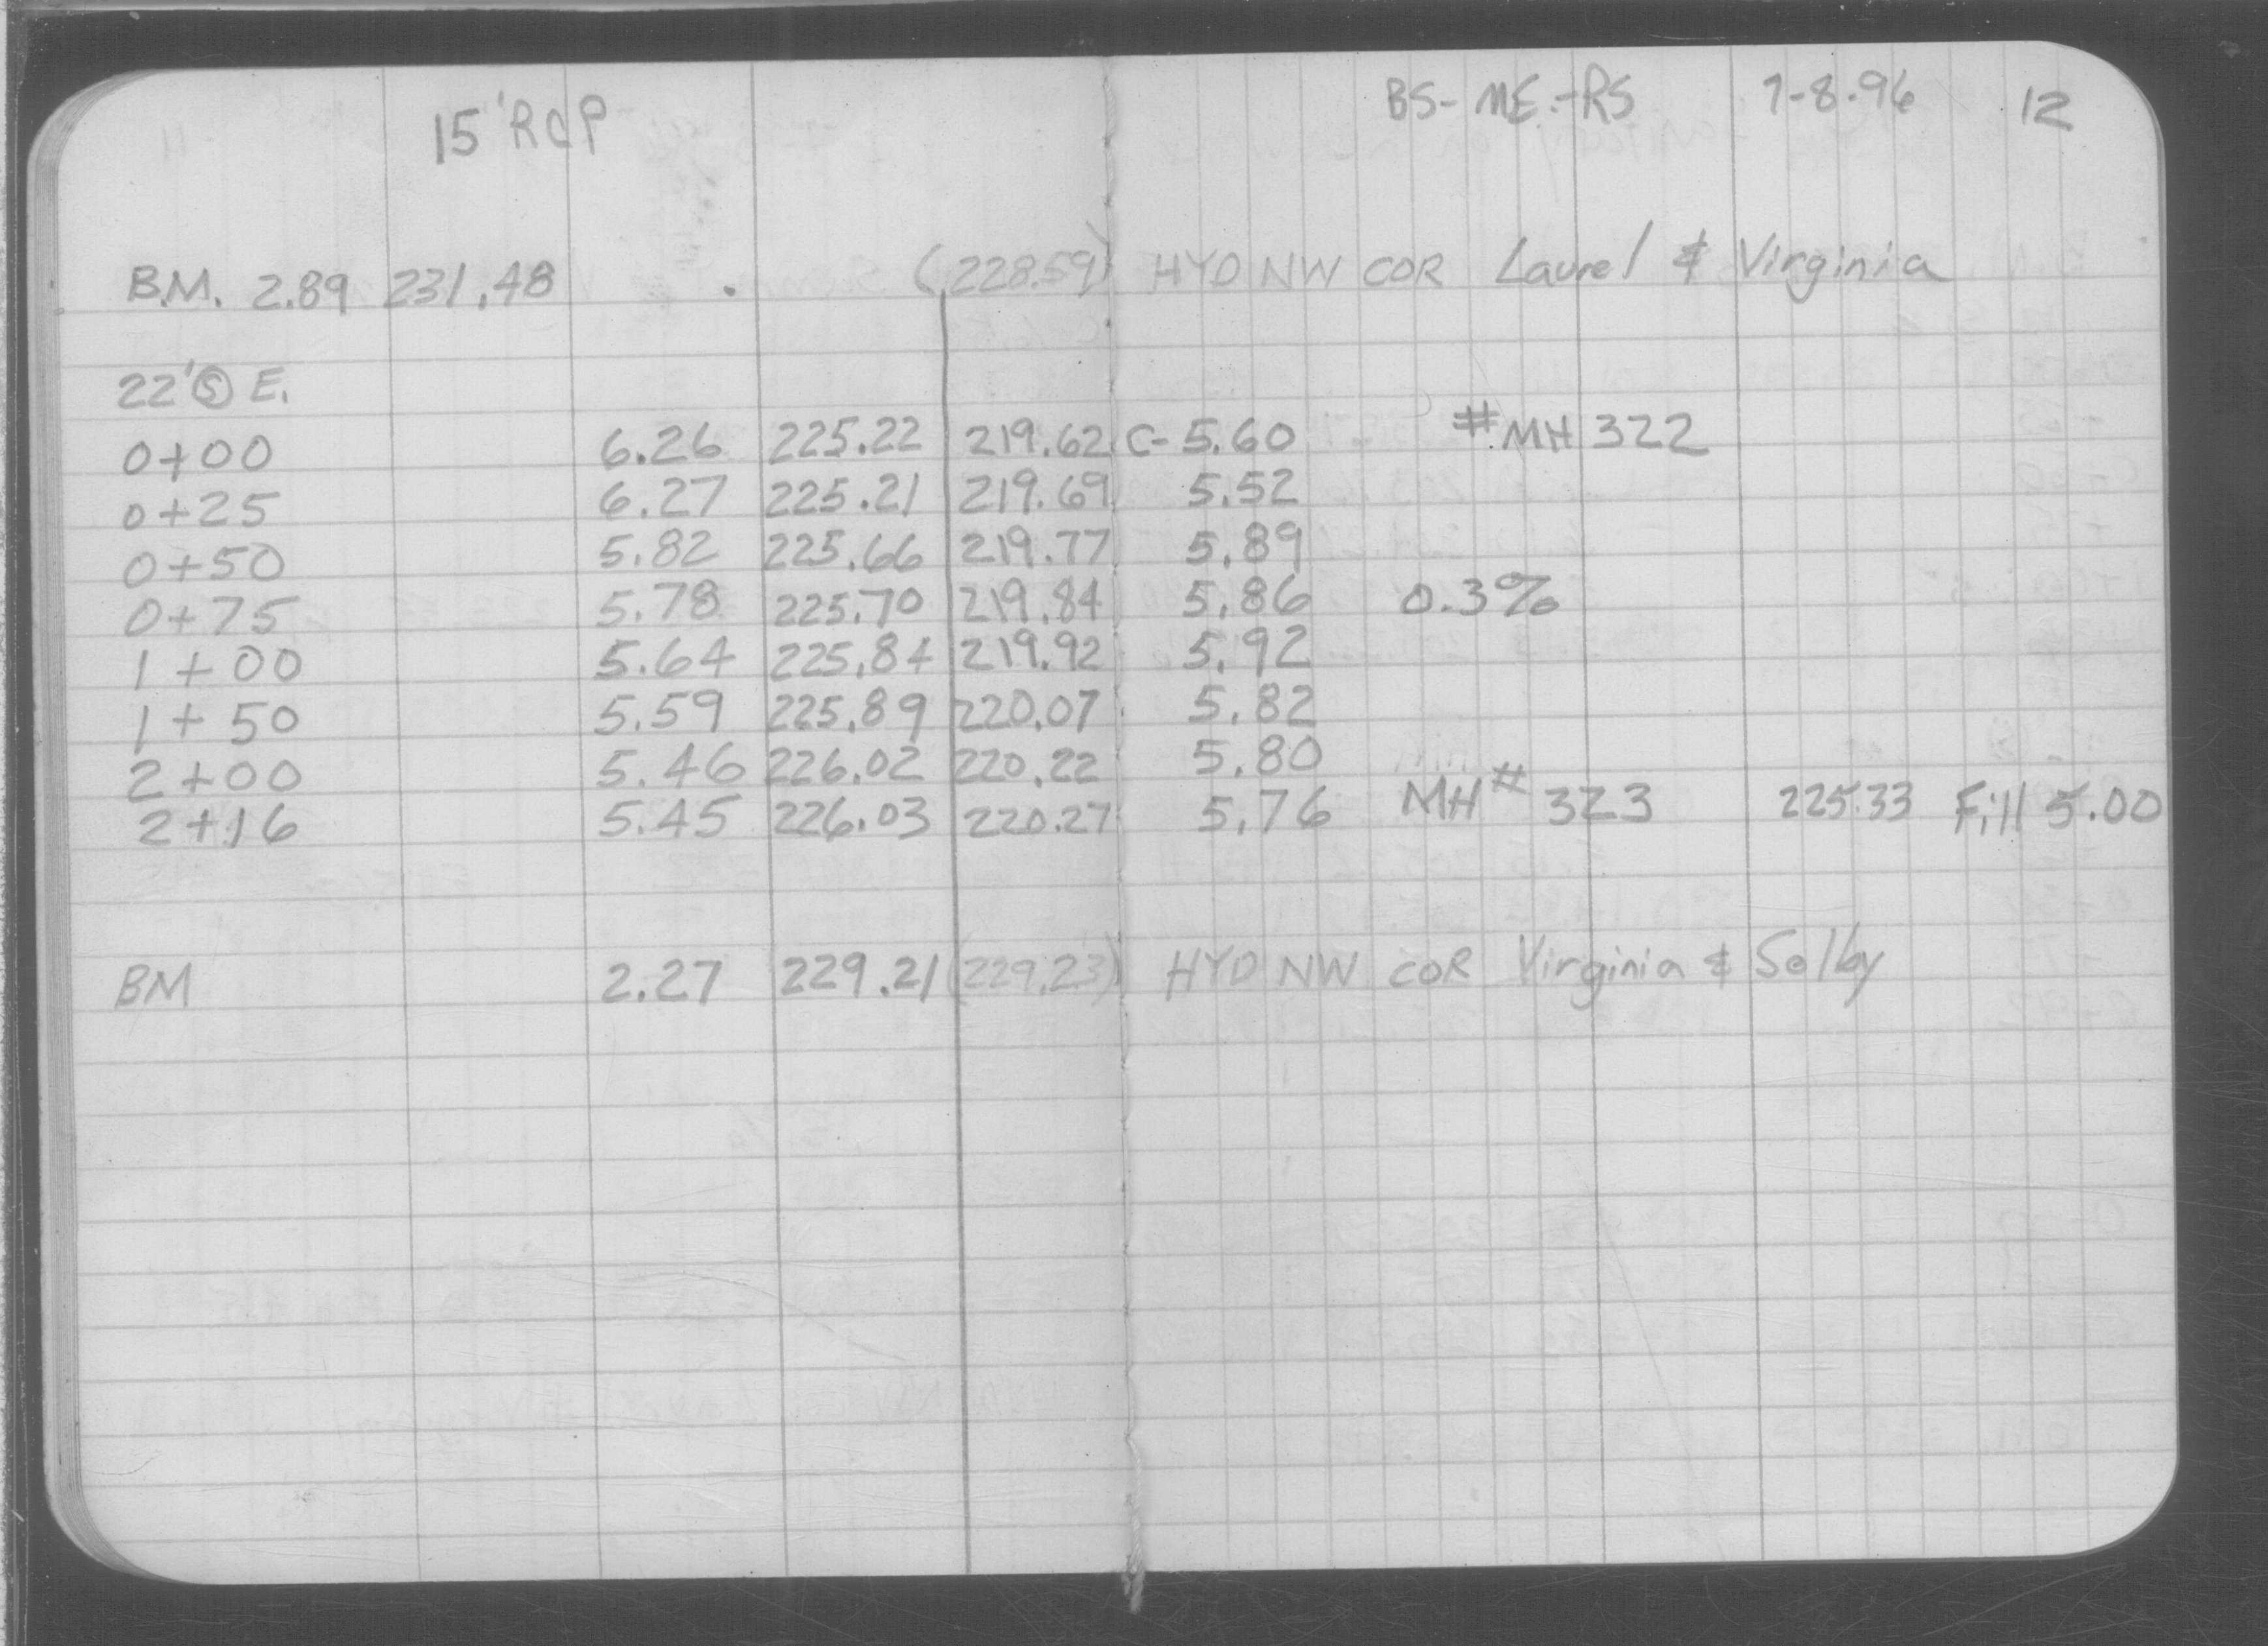 15' RCP BS-ME.-RS 7-8-96 12
B.M. 2.89 231.48 (228.59) HYD NW COR Laurel & Virginia
22' Ⓢ E.
0+00 6.26 225.22 219.62 C- 5.60 #MH 322
0+25 6.27 225.21 219.69 5.52
0+50 5.82 225.66 219.77 5.89
0+75 5.78 225.70 219.84 5.86 0.3%
1+00 5.64 225.84 219.92 5.92
1+50 5.59 225.89 220.07 5.82
2+00 5.46 226.02 220.22 5.80
2+16 5.45 226.03 220.27 5.76 MH# 323 225.33 Fill 5.00
BM 2.27 229.21 (229.23) HYD NW COR Virginia & Selby